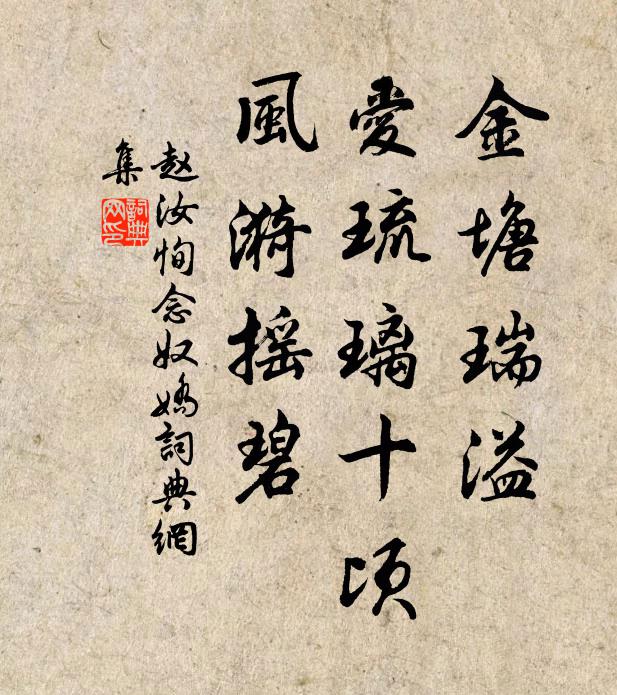 金塘瑞溢
愛琉璃十頃
風漪搖碧
赵汝恂念奴嬌詞典網
集
詞典
网印